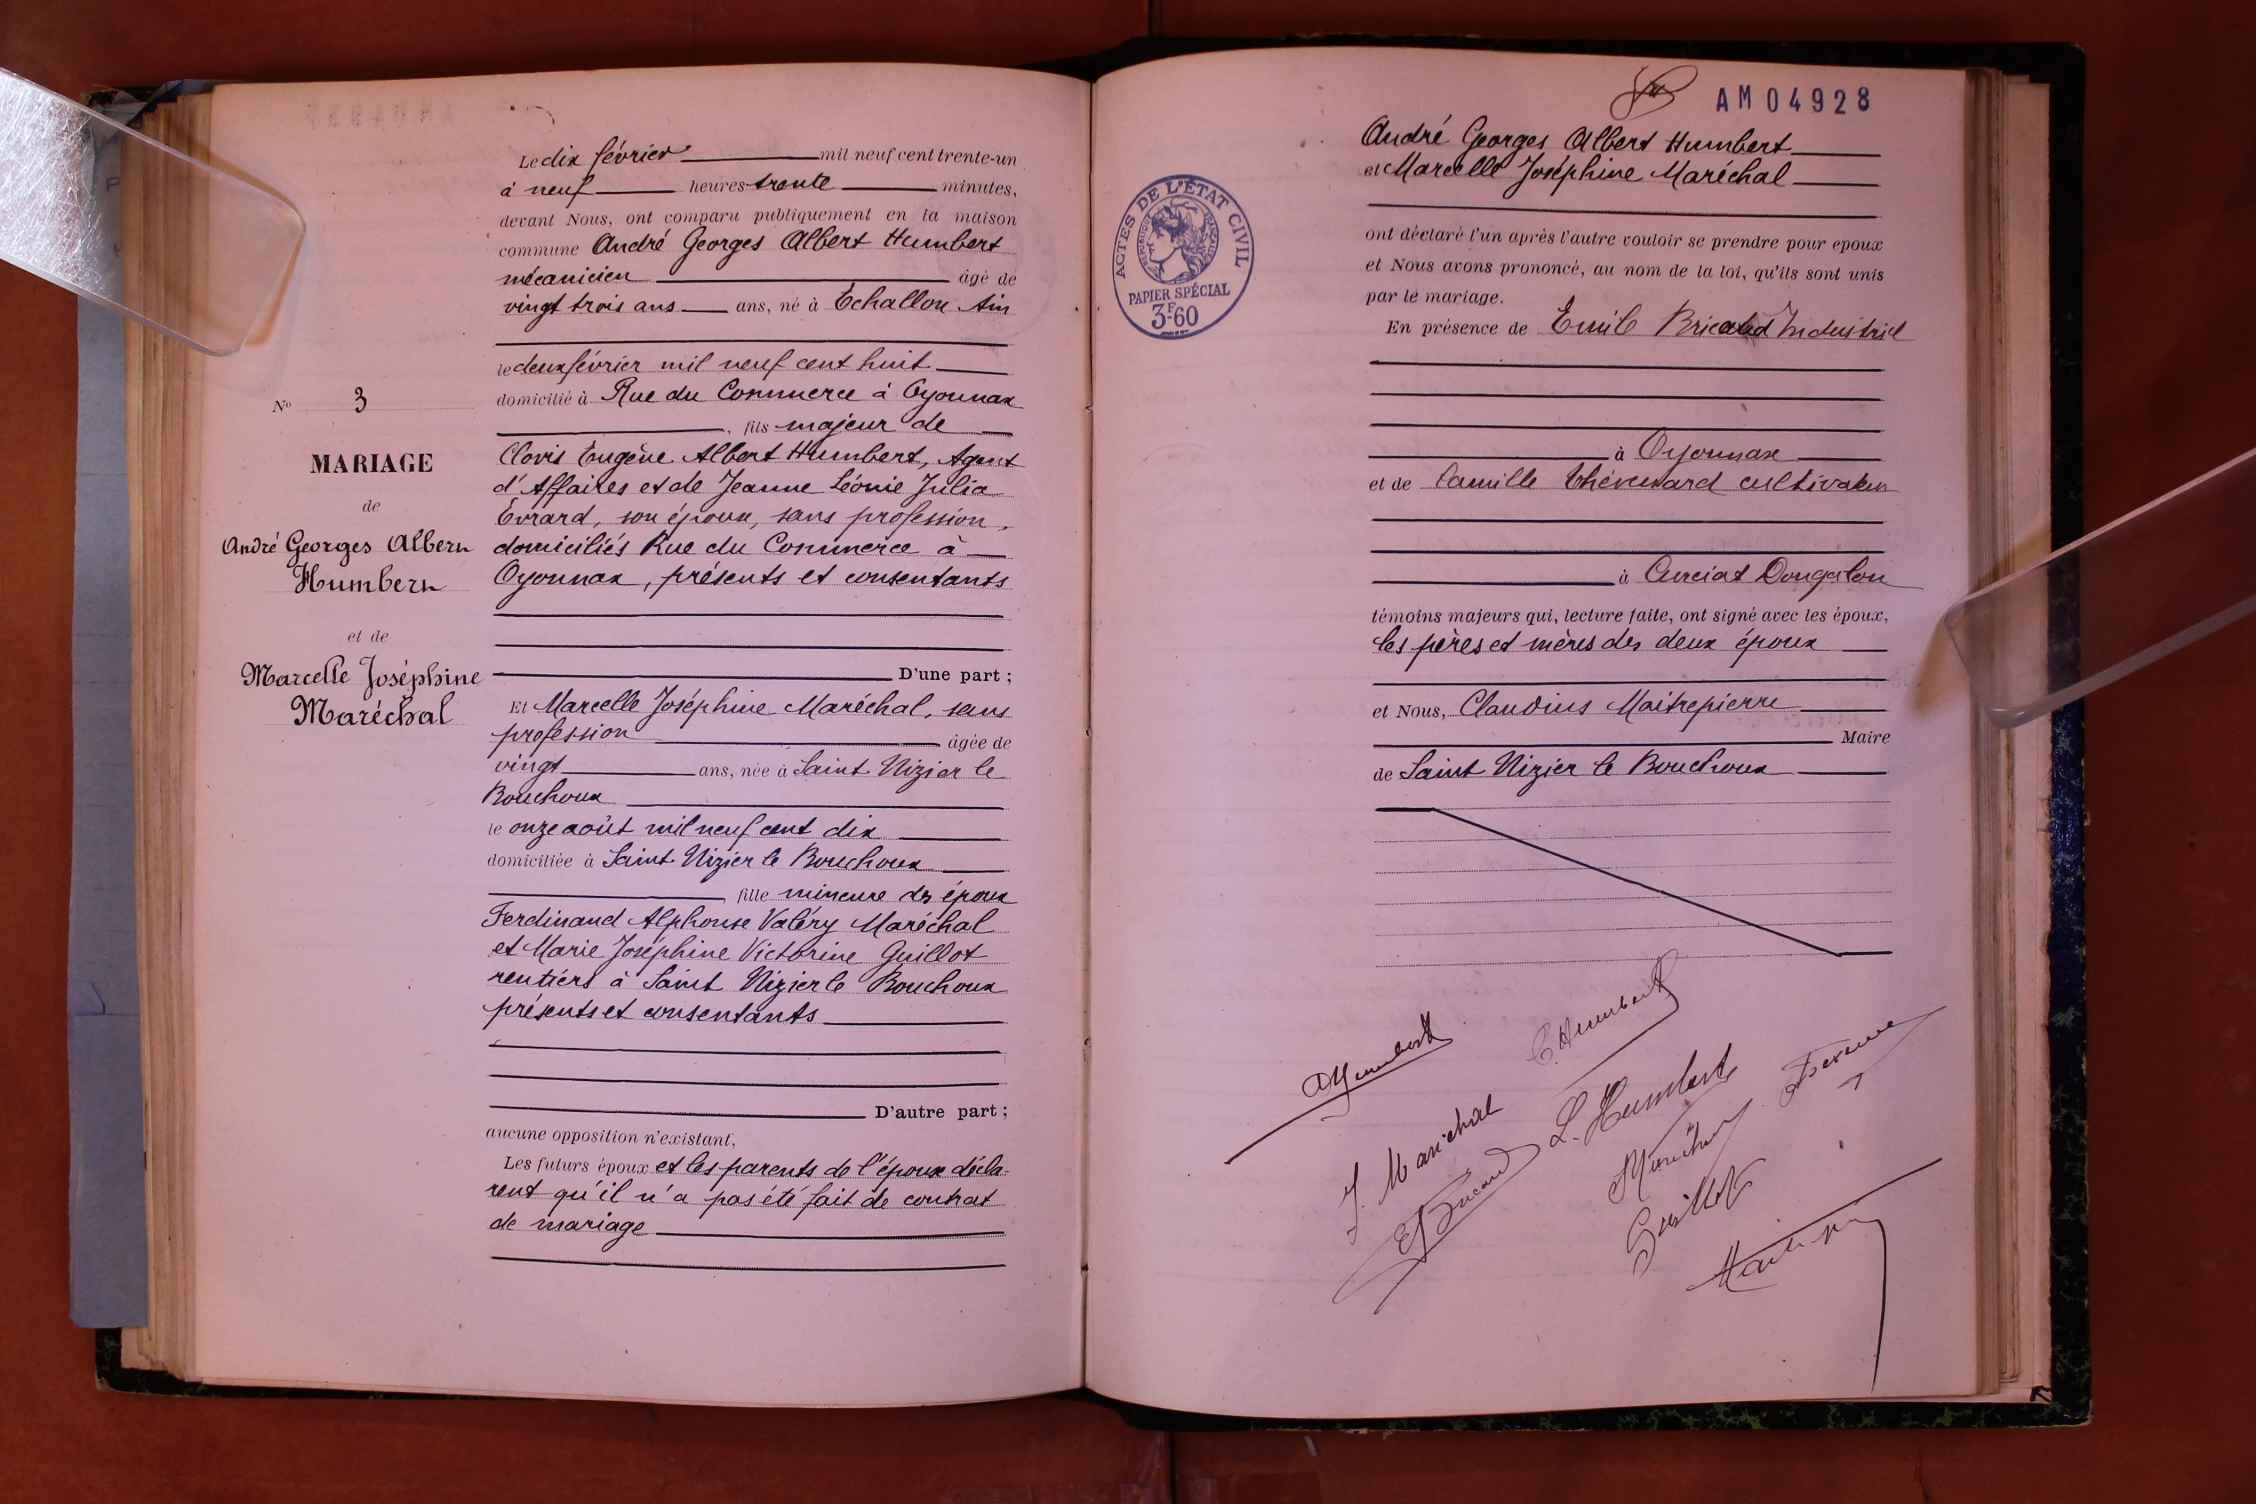 Le dix février mil neuf cent trente-un
à neuf heures trente minutes,
devant Nous, ont comparu publiquement en la maison
commune André Georges Albert Humbert
mécanicien âgé de
vingt trois ans ans, né à Echallon Ain
le deux février mil neuf cent huit
domicilié à Rue du Commerce à Oyonnax
, fils majeur de
Clovis Eugène Albert Humbert, Agent
d'Affaires et de Jeanne Léonie Julia
Evrard, son épouse, sans profession,
domiciliés Rue du Commerce à
Oyonnax, présents et consentants
D'une part ;
Et Marcelle Joséphine Maréchal, sans
profession âgée de
vingt ans, née à Saint Nizier le
Bouchoux
le onze août mil neuf cent dix
domiciliée à Saint Nizier le Bouchoux
, fille mineure des époux
Ferdinand Alphonse Valéry Maréchal
et Marie Joséphine Victorine Guillot
rentiers à Saint Nizier le Bouchoux
présents et consentants
D'autre part ;
aucune opposition n'existant,
Les futurs époux et les parents de l'époux décla-
rent qu'il n'a pas été fait de contrat
de mariage
No 3
MARIAGE
de
André Georges Albert
Humbert
et de
Marcelle Joséphine
Maréchal
AM04928
ACTES DE L'ÉTAT CIVIL
RÉPUBLIQUE FRANÇAISE
PAPIER SPÉCIAL
3F60
André Georges Albert Humbert
et Marcelle Joséphine Maréchal
ont déclaré l'un après l'autre vouloir se prendre pour époux
et Nous avons prononcé, au nom de la loi, qu'ils sont unis
par le mariage.
En présence de Emile Industriel
à Oyonnax
et de Camille Thévenard cultivateur
à Curciat Dongalon
témoins majeurs qui, lecture faite, ont signé avec les époux,
les pères et mères des deux époux
et Nous, Claudius Maitrepierre
Maire
de Saint Nizier le Bouchoux
AHumbert
C. Humbert
J. Maréchal
L. Humbert
Guillot